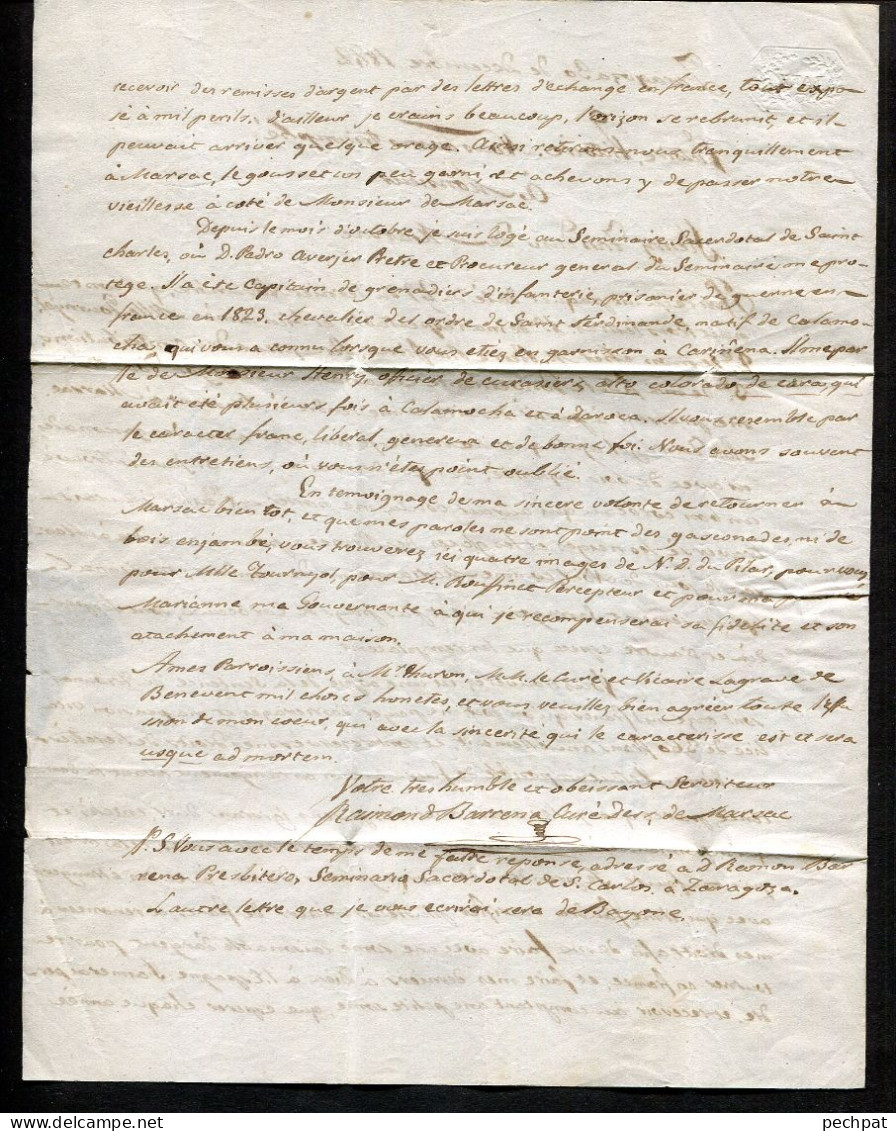 recevoir des remisses d'argent par des lettres d'echange en france, tout expo-
sé à mil perils. d'ailleur je crains beaucoup, l'orizon se rebrunit, et il
pouvait arriver quelque orage. Ainsi retirons nous tranquillement
à Marsac, le gousset un peu garni, et achevons y de passer notre
vieillesse à coté de Monsieur de Marsac.
Depuis le mois d'octobre je suis logé au Seminaire Sacerdotal de Saint
charles, où D. Pedro Averjer Pretre et Procureur general du Seminaire me pro-
tege. Il a eté Capitain de grenadiers d'infanterie, prisonier de guerre en
france en 1823. chevalier del ordre de Saint Ferdinande, natif de Calamo-
cha, qui vous a connu lorsque vous eties en garnison à Cariñena. Il me par
le de Monsieur Henry, oficier de curasiers, alto colorado de cara, qui
avait eté plusieurs fois à Calamocha et à Daroca. Il vous resemble par
le caracter franc, liberal, genereux et de bonne foi. Nous avons souvent
des entretiens, où vous n'étes point oublié.
En temoignage de ma sincere volonté de retourner à
Marsac bien tot, et que mes paroles ne sont point des gasconades, ni de
bois enjambé, vous trouverez ici quatre images de N. D. du Pilar, pour vous
pour Mlle Tournyol, pour M. Bouffinet Percepteur et pour ma
Marianne ma Gouvernante à qui je recompenserai sa fidelité et son
atachement à ma maison.
A mes Parroissiens, à Mr thuron, M.M. le Curé et Vicaire Lagrave de
Benevent mil choses honetes, et vous veuilles bien agréer toute l'effu
sion de mon coeur, qui avec la sincerité qui le caracterise est et sera
usque ad mortem.
Votre tres humble et obeissant Serviteur
Raimond Barrena Curé Des. de Marsac
P. S. Vous avec le temps de me faire reponse, adressé à D Ramon Bar
rena Presbitero, Seminario Sacerdotal de Sn. Carlos. à Zaragoza.
L'autre lettre que je vous ecrirai sera de Bayone
pechpat